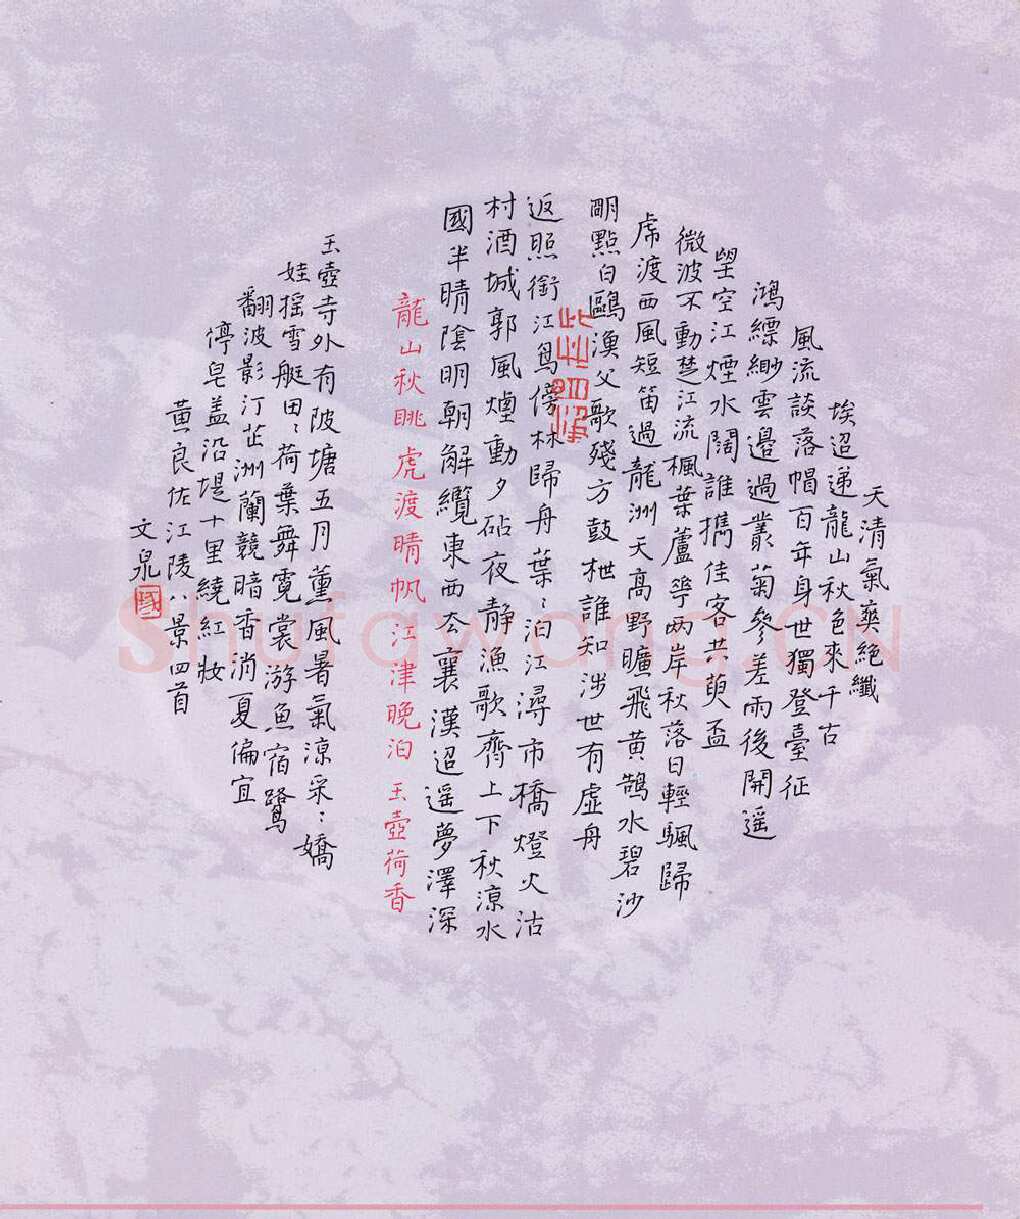 天清氣爽絕纖
埃迢递龍山秋色來千古
風流談落帽百年身世獨登臺征
鴻縹緲雲邊過叢菊參差雨後開遥
望空江煙水闊誰攜佳客共萸盃
微波不動楚江流楓葉蘆華两岸秋落日輕颿歸
虎渡西風短笛過龍洲天高野曠飛黃鵠水碧沙
明點白鷗漁父歌殘方鼓枻誰知涉世有虛舟
返照銜江鳥傍林歸舟葉〻泊江潯市橋燈火沽
村酒城郭風煙動夕砧夜静漁歌齊上下秋涼水
國半晴陰明朝解纜東西去襄漢迢遥夢澤深
龍山秋眺 虎渡晴帆 江津晚泊 玉壺荷香
玉壺寺外有陂塘五月薰風暑氣涼采〻嬌
娃搖雪艇田〻荷葉舞霓裳游魚宿鷺
翻波影汀芷洲蘭競暗香消夏偏宜
停皂盖沿堤十里繞紅妝
黃良佐江陵八景四首
文泉
Shufawang.CN